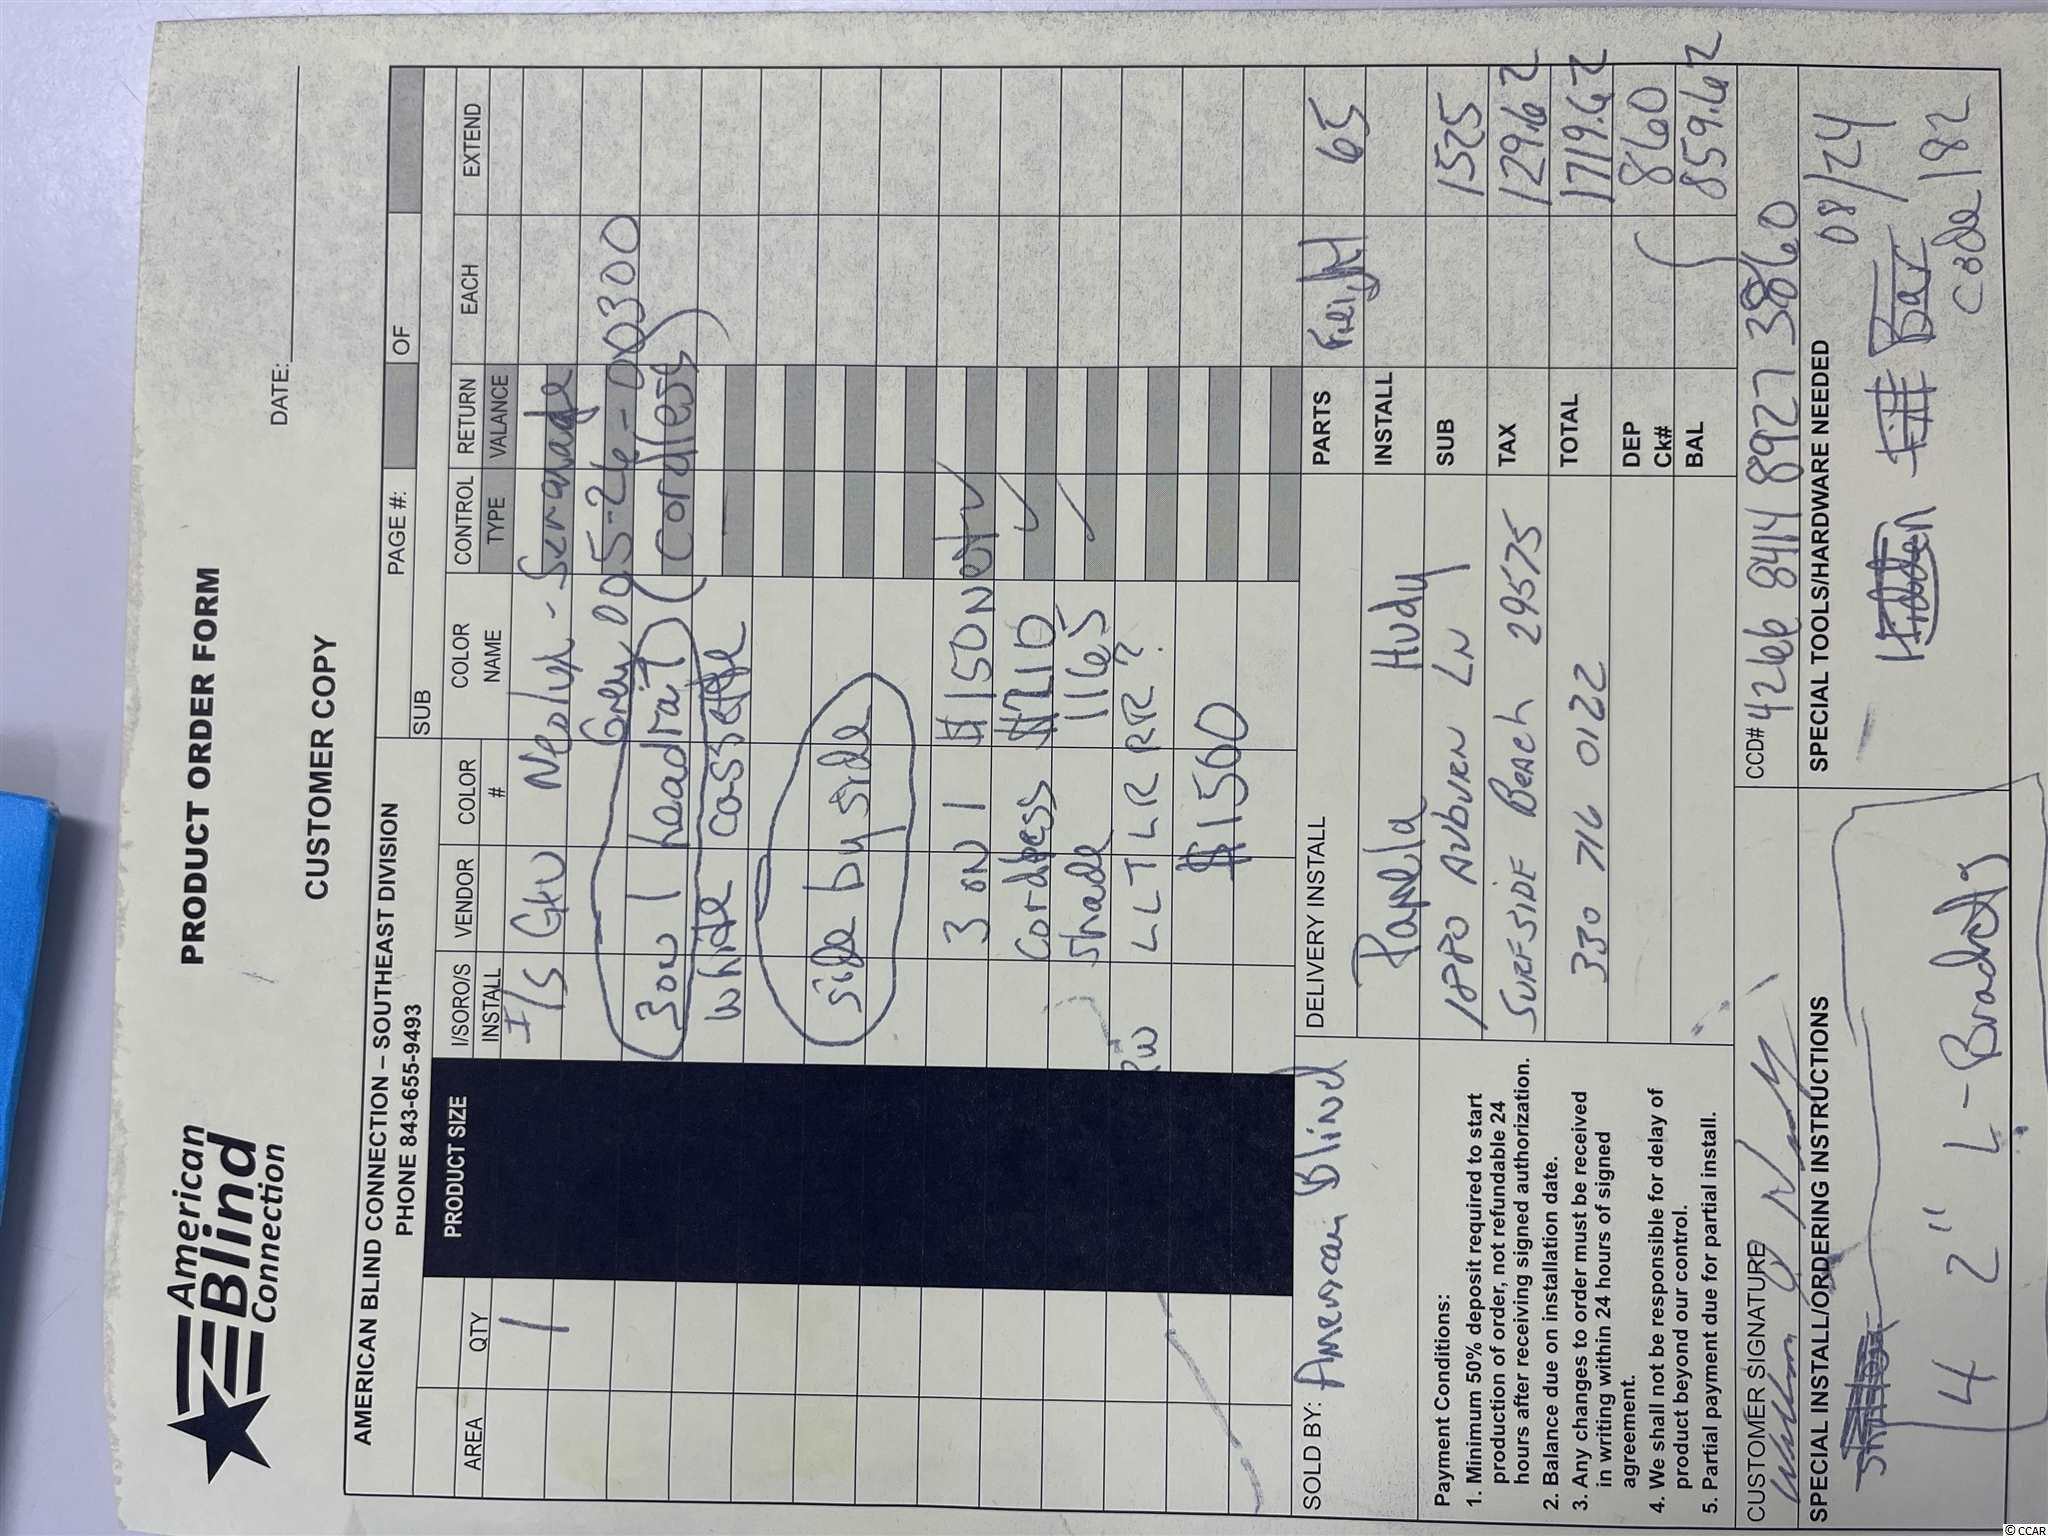 American
Blind
Connection
PRODUCT ORDER FORM
CUSTOMER COPY
DATE:
AMERICAN BLIND CONNECTION – SOUTHEAST DIVISION
PHONE 843-655-9493
PAGE #:
OF
SUB
AREA QTY PRODUCT SIZE I/SORO/S INSTALL VENDOR COLOR # COLOR NAME CONTROL TYPE RETURN VALANCE EACH EXTEND
1 I/S
3 on 1 headrail (cordless)
white cassette
side by side
3 on 1 $150 Net
Cordless $210
Shade 1165
LL TL RR RR?
$1500
SOLD BY: American Blind
DELIVERY INSTALL
Pamela Hudy
1880 AUBURN LN
SURFSIDE BEACH 29575
330 716 0122
PARTS Freight 65
INSTALL
SUB 1525
TAX 129.62
TOTAL 1719.62
DEP Ck# 860
BAL 859.62
Payment Conditions:
1. Minimum 50% deposit required to start
production of order, not refundable 24
hours after receiving signed authorization.
2. Balance due on installation date.
3. Any changes to order must be received
in writing within 24 hours of signed
agreement.
4. We shall not be responsible for delay of
product beyond our control.
5. Partial payment due for partial install.
CUSTOMER SIGNATURE
CCD#
SPECIAL INSTALL/ORDERING INSTRUCTIONS
4 2" L-Brackets
SPECIAL TOOLS/HARDWARE NEEDED
© CCAR